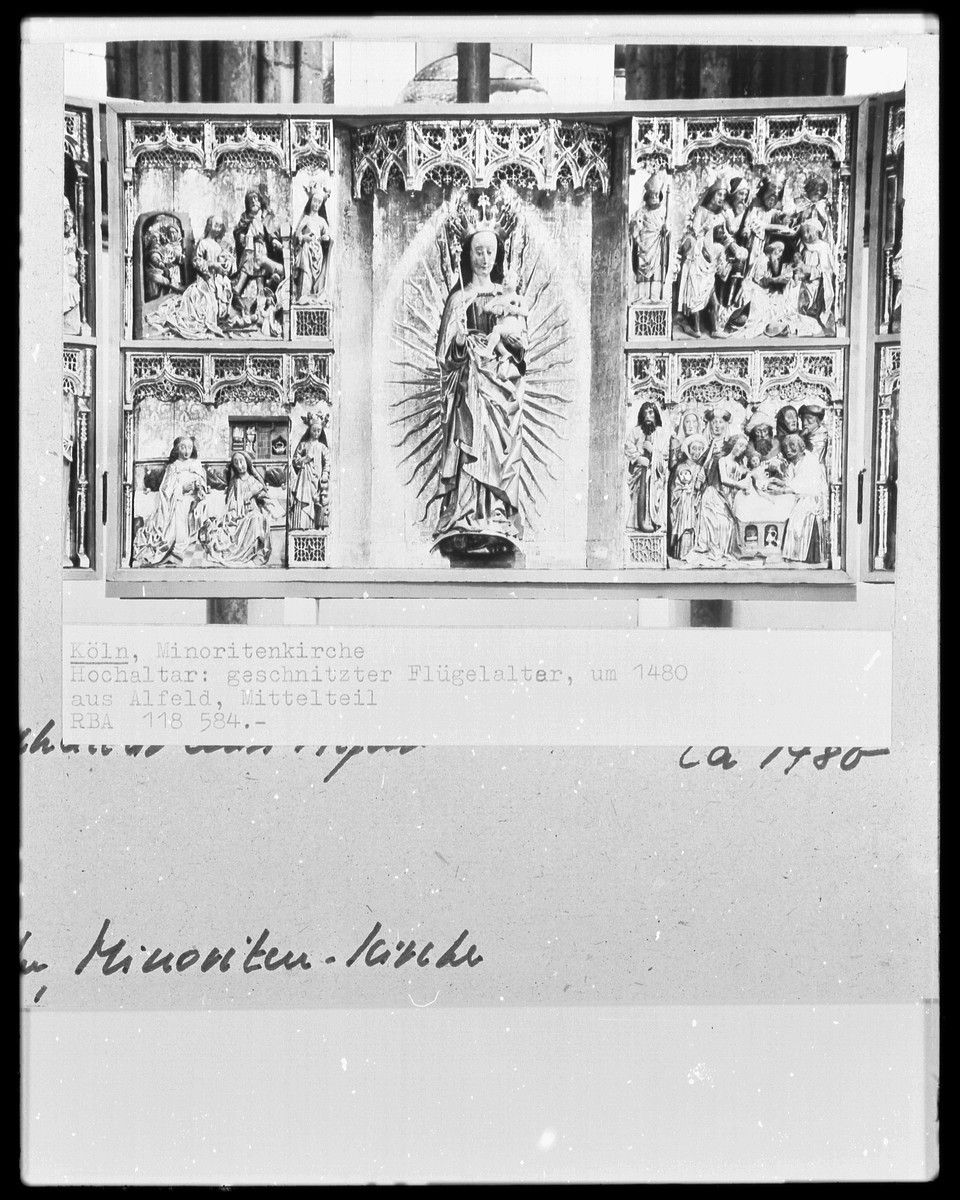 Köln, Minoritenkirche
Hochaltar: geschnitzter Flügelaltar, um 1480
aus Alfeld, Mittelteil
RBA 118 584.-
ca 1480
, Minoriten-Kirche